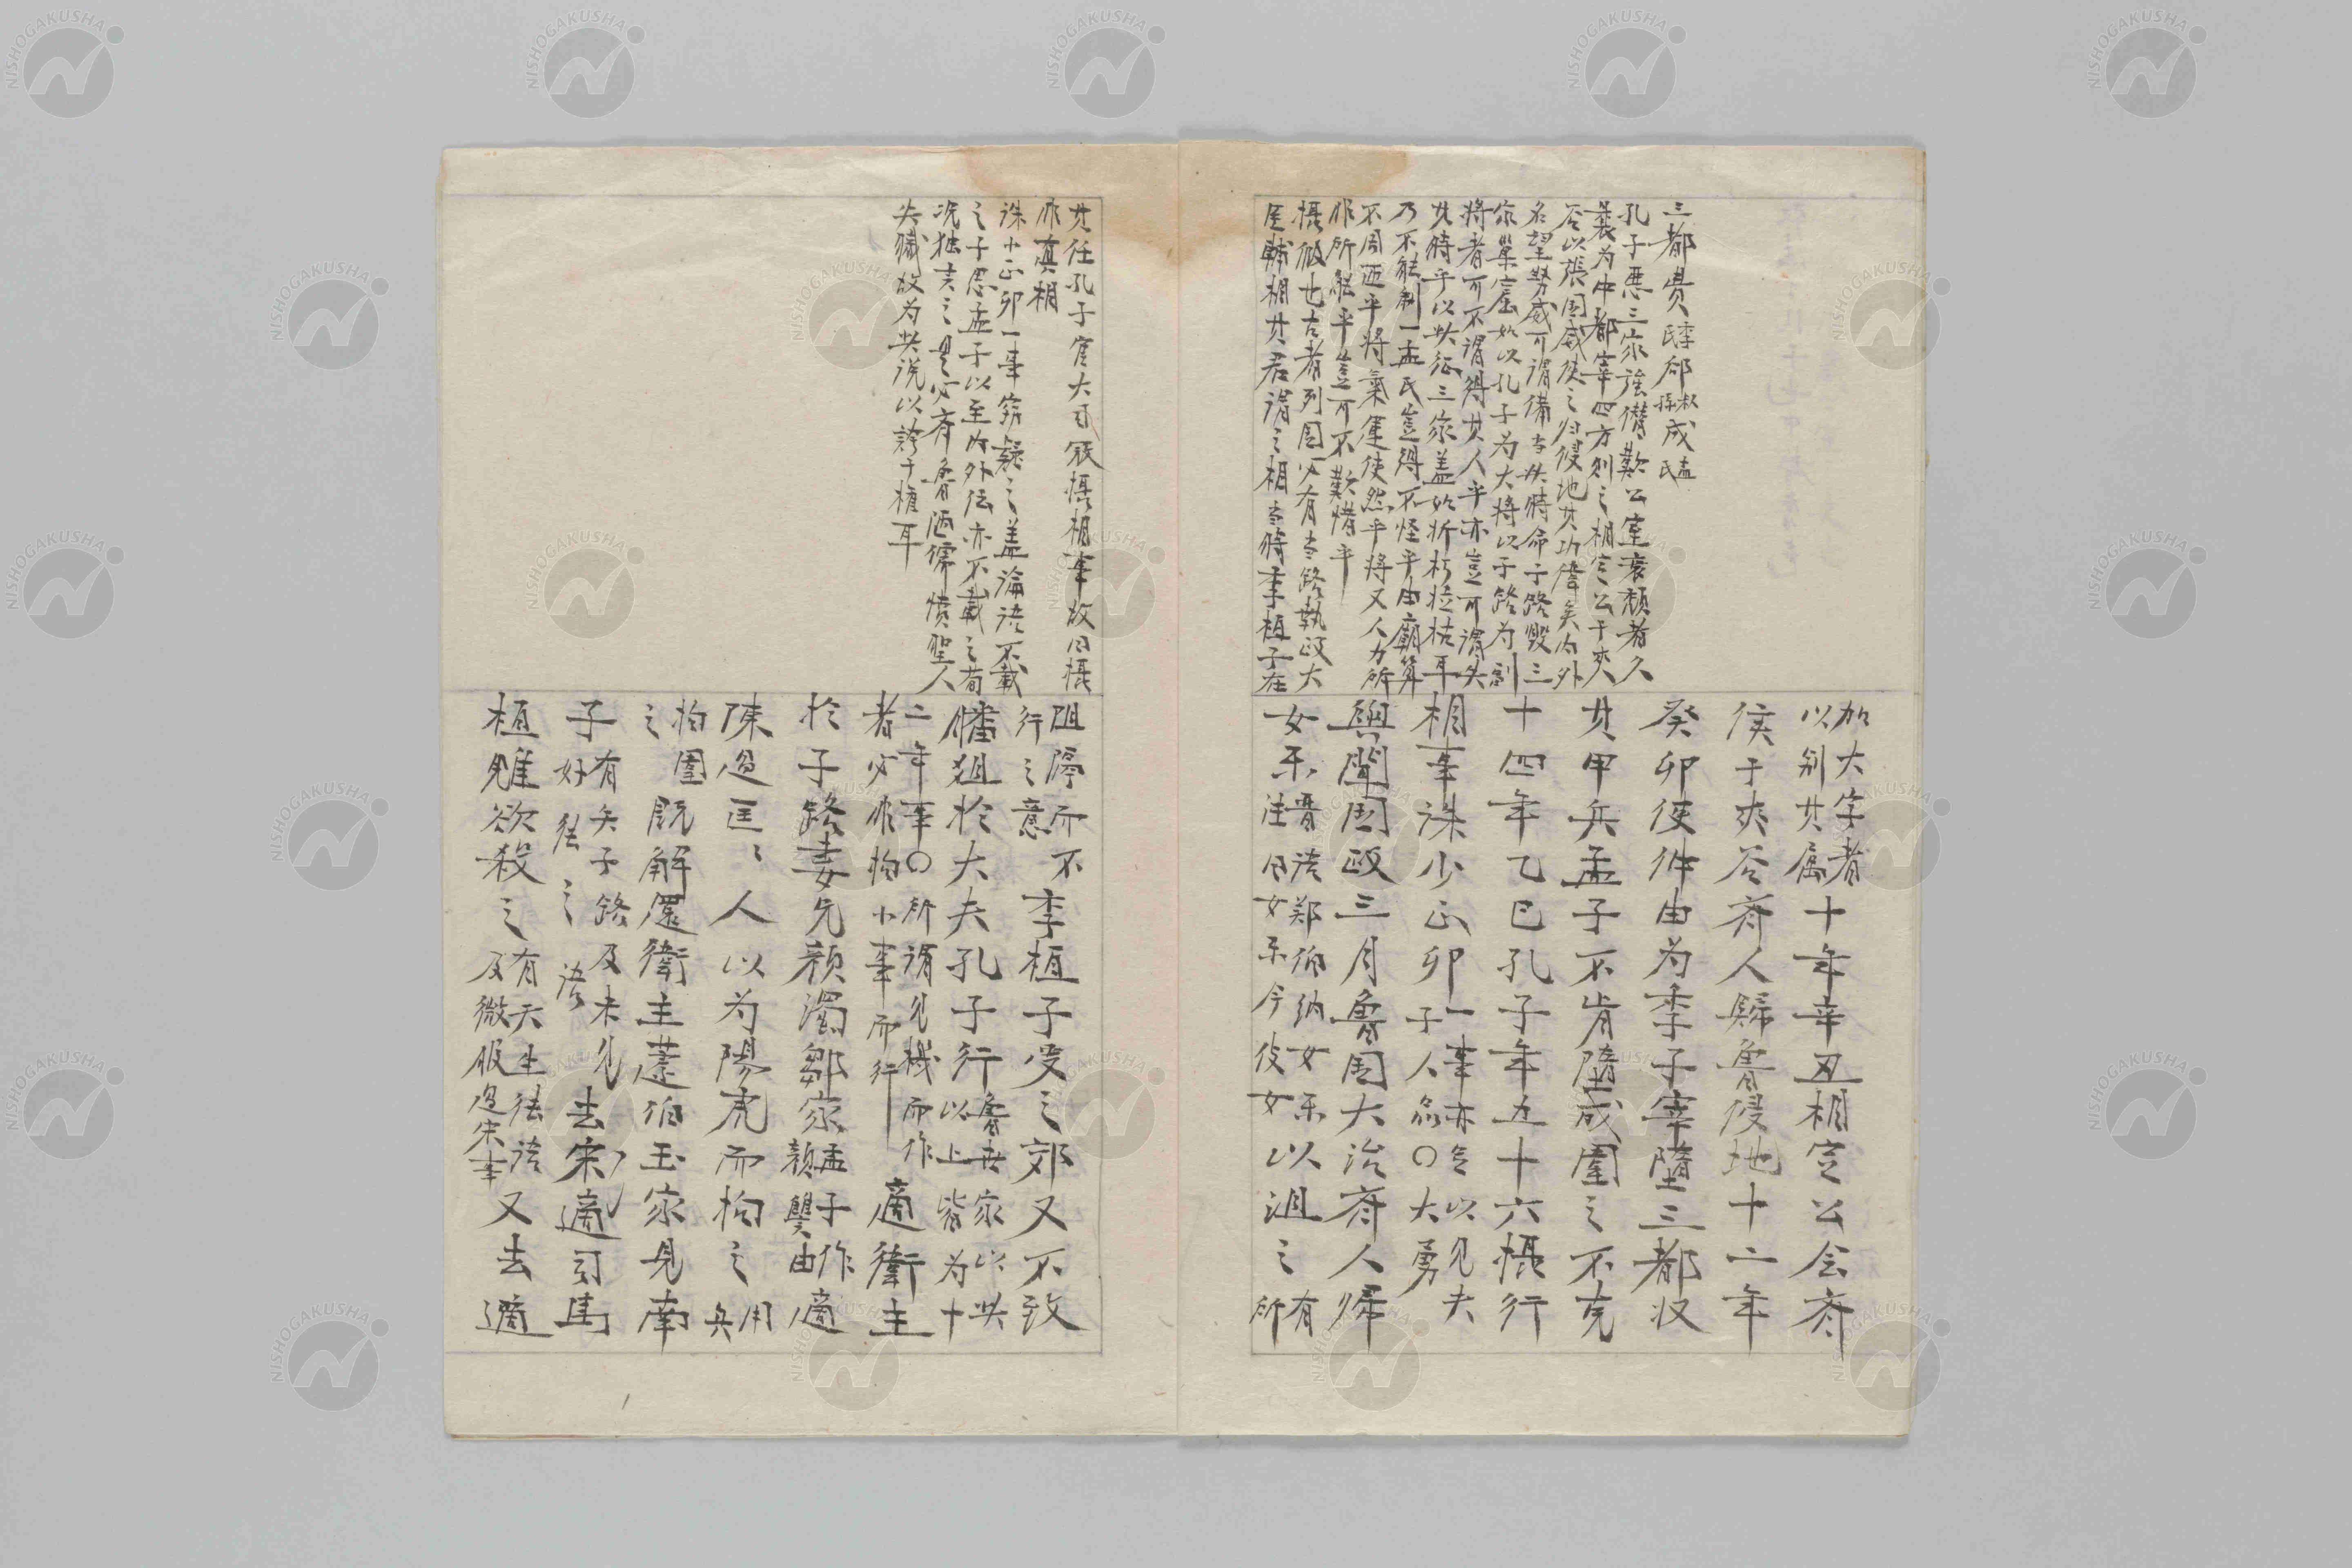 三都費季氏郈叔孫成孟氏
孔子悪三家強僣歎公室衰頽者久
矣為中都宰四方則之相定公于夾
谷以張国威使之归侵地其功偉矣内外
名望勢威可謂備當此時命子路毀三
家巣窟如以孔子为大将以子路为副
将者可不謂得其人乎亦豈可謂失
其時乎以此征三家盖如折朽拉枯耳
乃不能制一孟氏豈得不怪乎由廟算
不周迊乎将氣運使然乎将又人力所
作所能乎豈可不歎惜乎
摂做也古者列国必有當路執政大
臣輔相其君謂之相當時季桓子在
加大字者
以别其属十年辛丑相定公会齊
侯于夾谷齊人歸魯侵地十二年
癸卯使仲由为季子宰墮三都收
其甲兵孟子不肯墮成圍之不克
十四年乙巳孔子年五十六摂行
相事誅少正卯一事亦足以見夫
子人品〇大勇
與聞国政三月魯国大治齊人歸
女乐晋語郑伯纳女乐
注曰女乐今伎女以沮之有
所
其任孔子官大司寇摂相事故曰摂
非真相
誅小正卯一事窃疑之盖論語不載
之子思孟子以至内外伝亦不載之荀
况独言之是必齊魯陋儒憤聖人
失職故为此说以誇于植耳
阻滞而不
行之意季桓子受之郊又不致
膰俎於大夫孔子行魯世家以此
以上皆为十
二年事〇所謂見機而作
者必非拘小事而行適衛主
於子路妻兄顔濁鄒家孟子作
顔讐由適
陳過匡〻人以为陽虎而拘之用
兵
拘圍
之既解還衛主蘧伯玉家見南
子有矢子路及未見
好徳之語去宋適司馬
桓魋欲殺之有天生徳語
及微服過宋事又去適